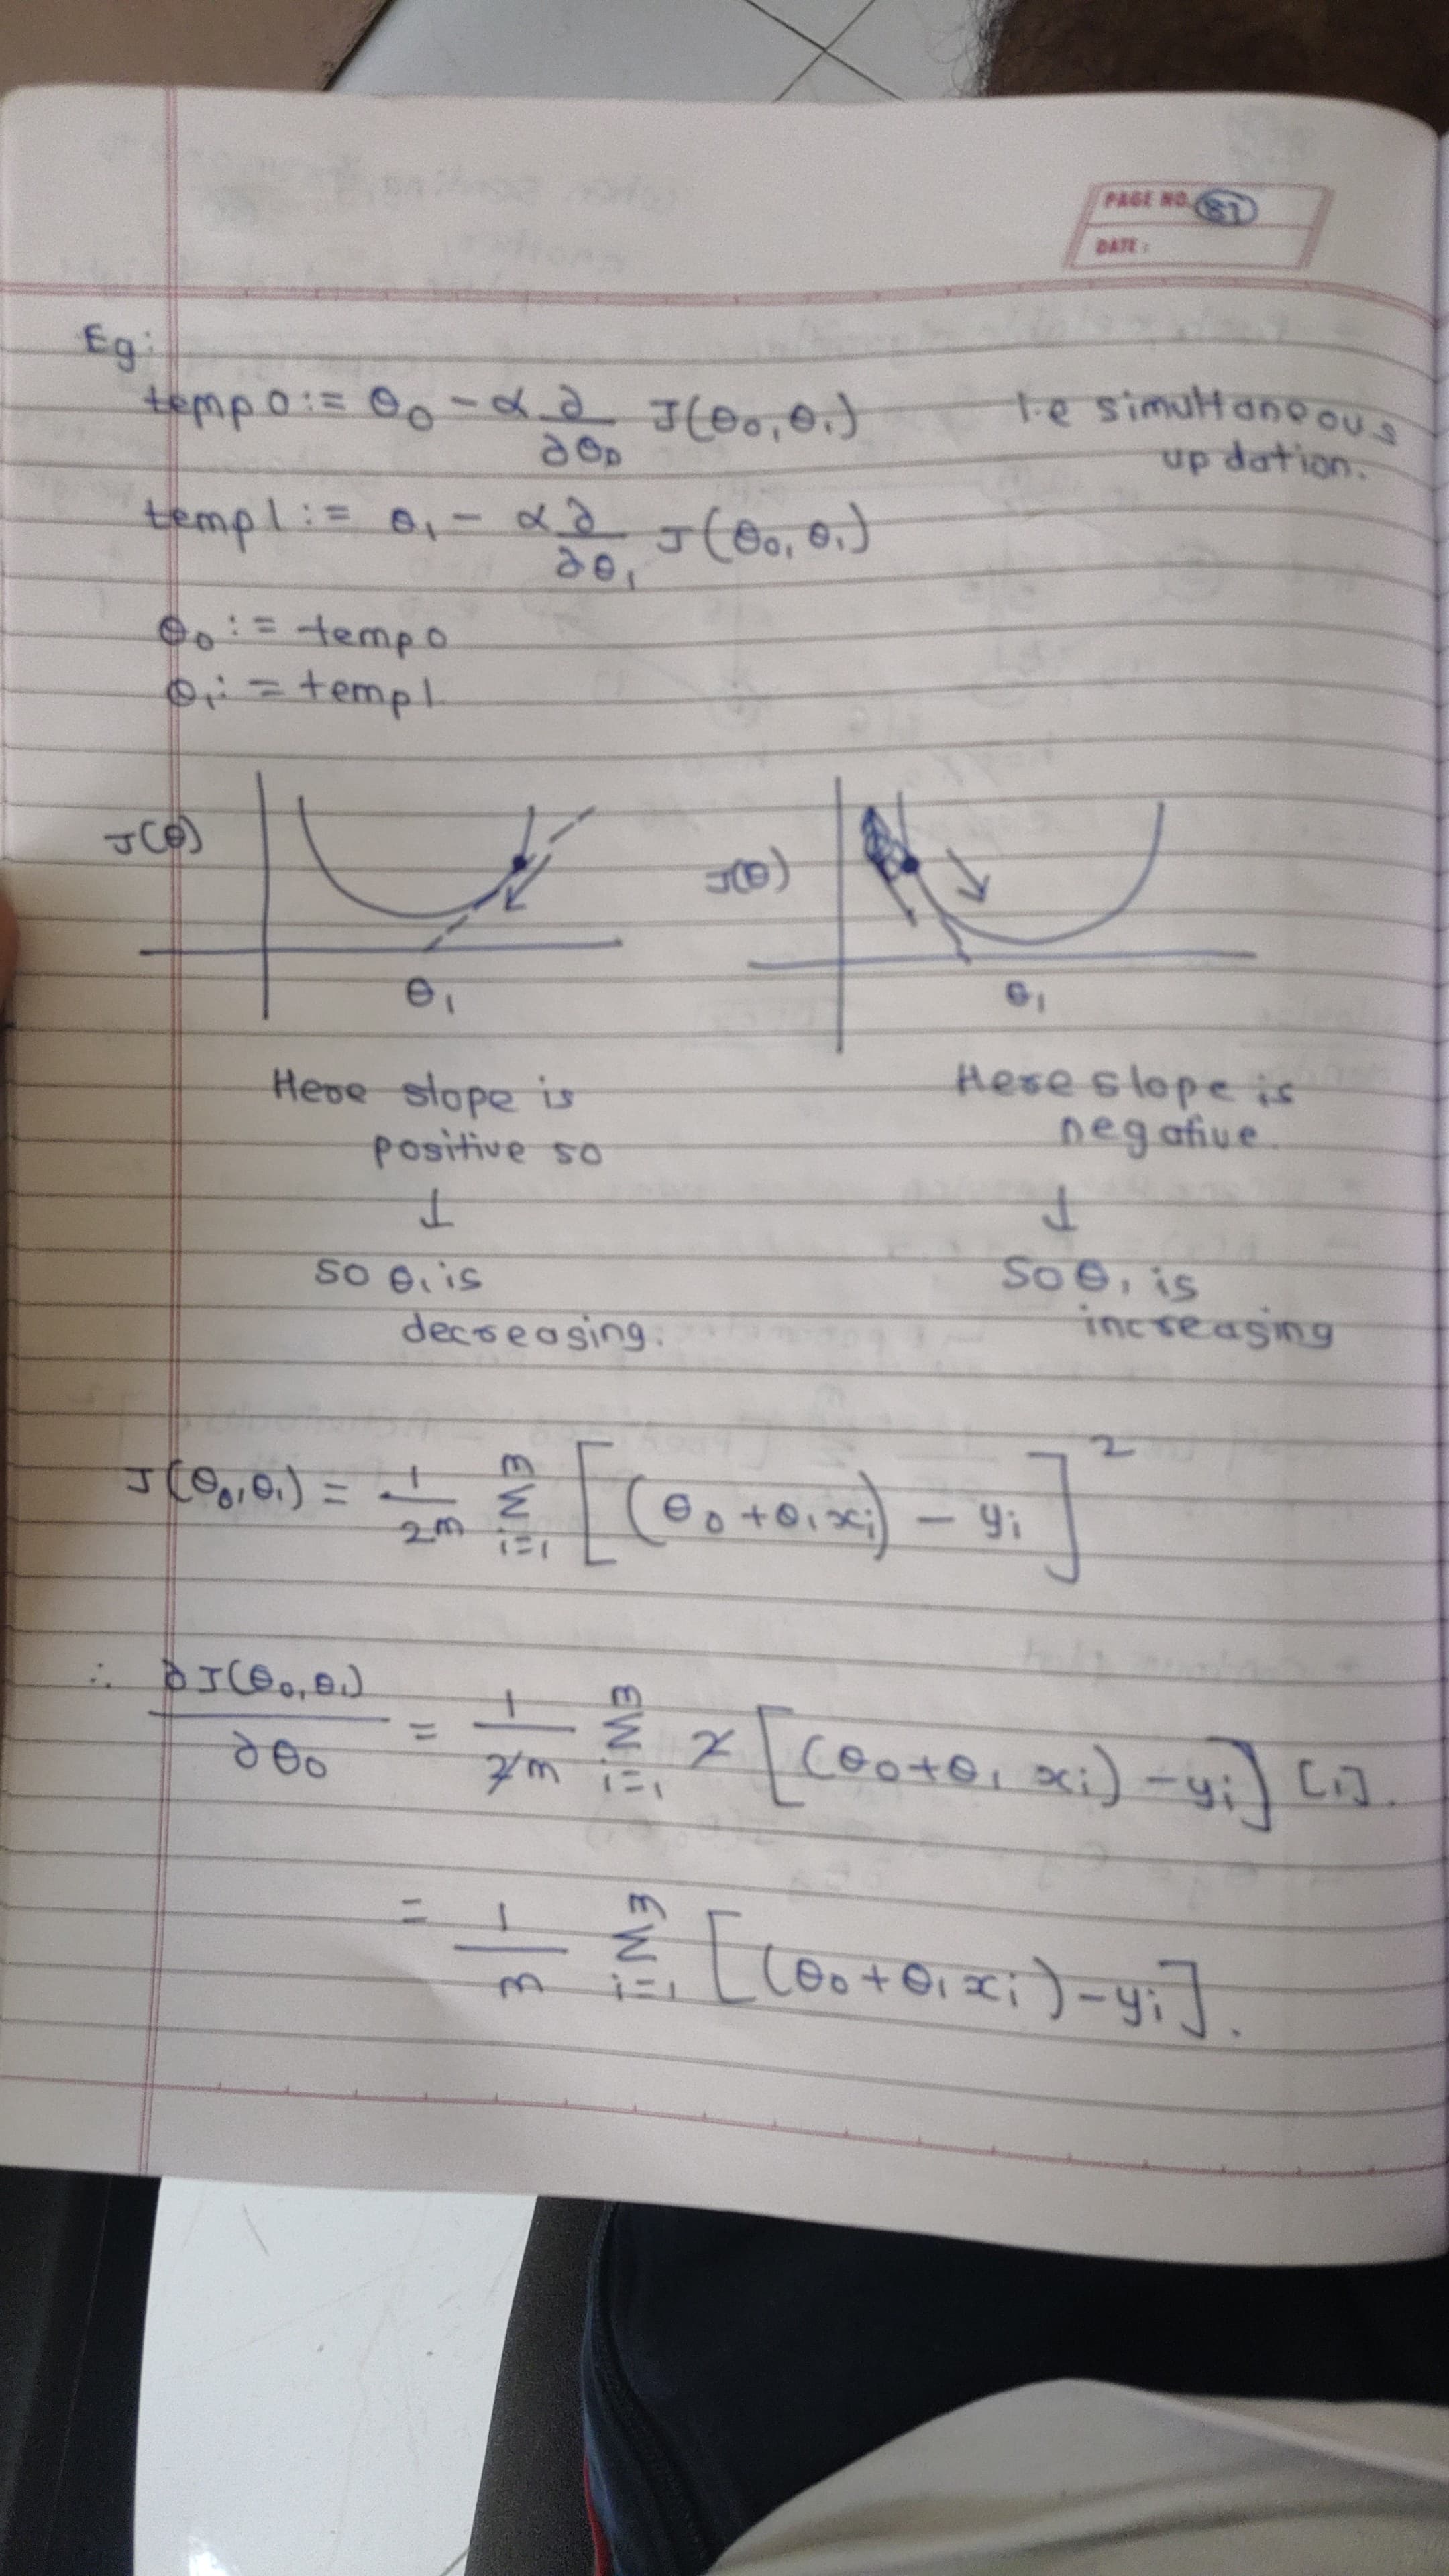 PAGE NO. 87
DATE:
Eg:
temp0 := θ₀ - α ∂/∂θ₀ J(θ₀, θ₁) i.e simultaneous
updation.
temp1 := θ₁ - α ∂/∂θ₁ J(θ₀, θ₁)
θ₀ := temp0
θ₁ := temp1
J(θ) J(θ)
θ₁ θ₁
Here slope is
positive so
↓
so θ₁ is
decreasing.
Here slope is
negative.
↓
So θ₁ is
increasing
J(θ₀, θ₁) = 1/2m Σ i=1 m [(θ₀ + θ₁xᵢ) - yᵢ]²
∴ ∂J(θ₀, θ₁)/∂θ₀ = 1/2m Σ i=1 m 2 [(θ₀ + θ₁ xᵢ) - yᵢ] [1].
= 1/m Σ i=1 m [(θ₀ + θ₁xᵢ) - yᵢ].